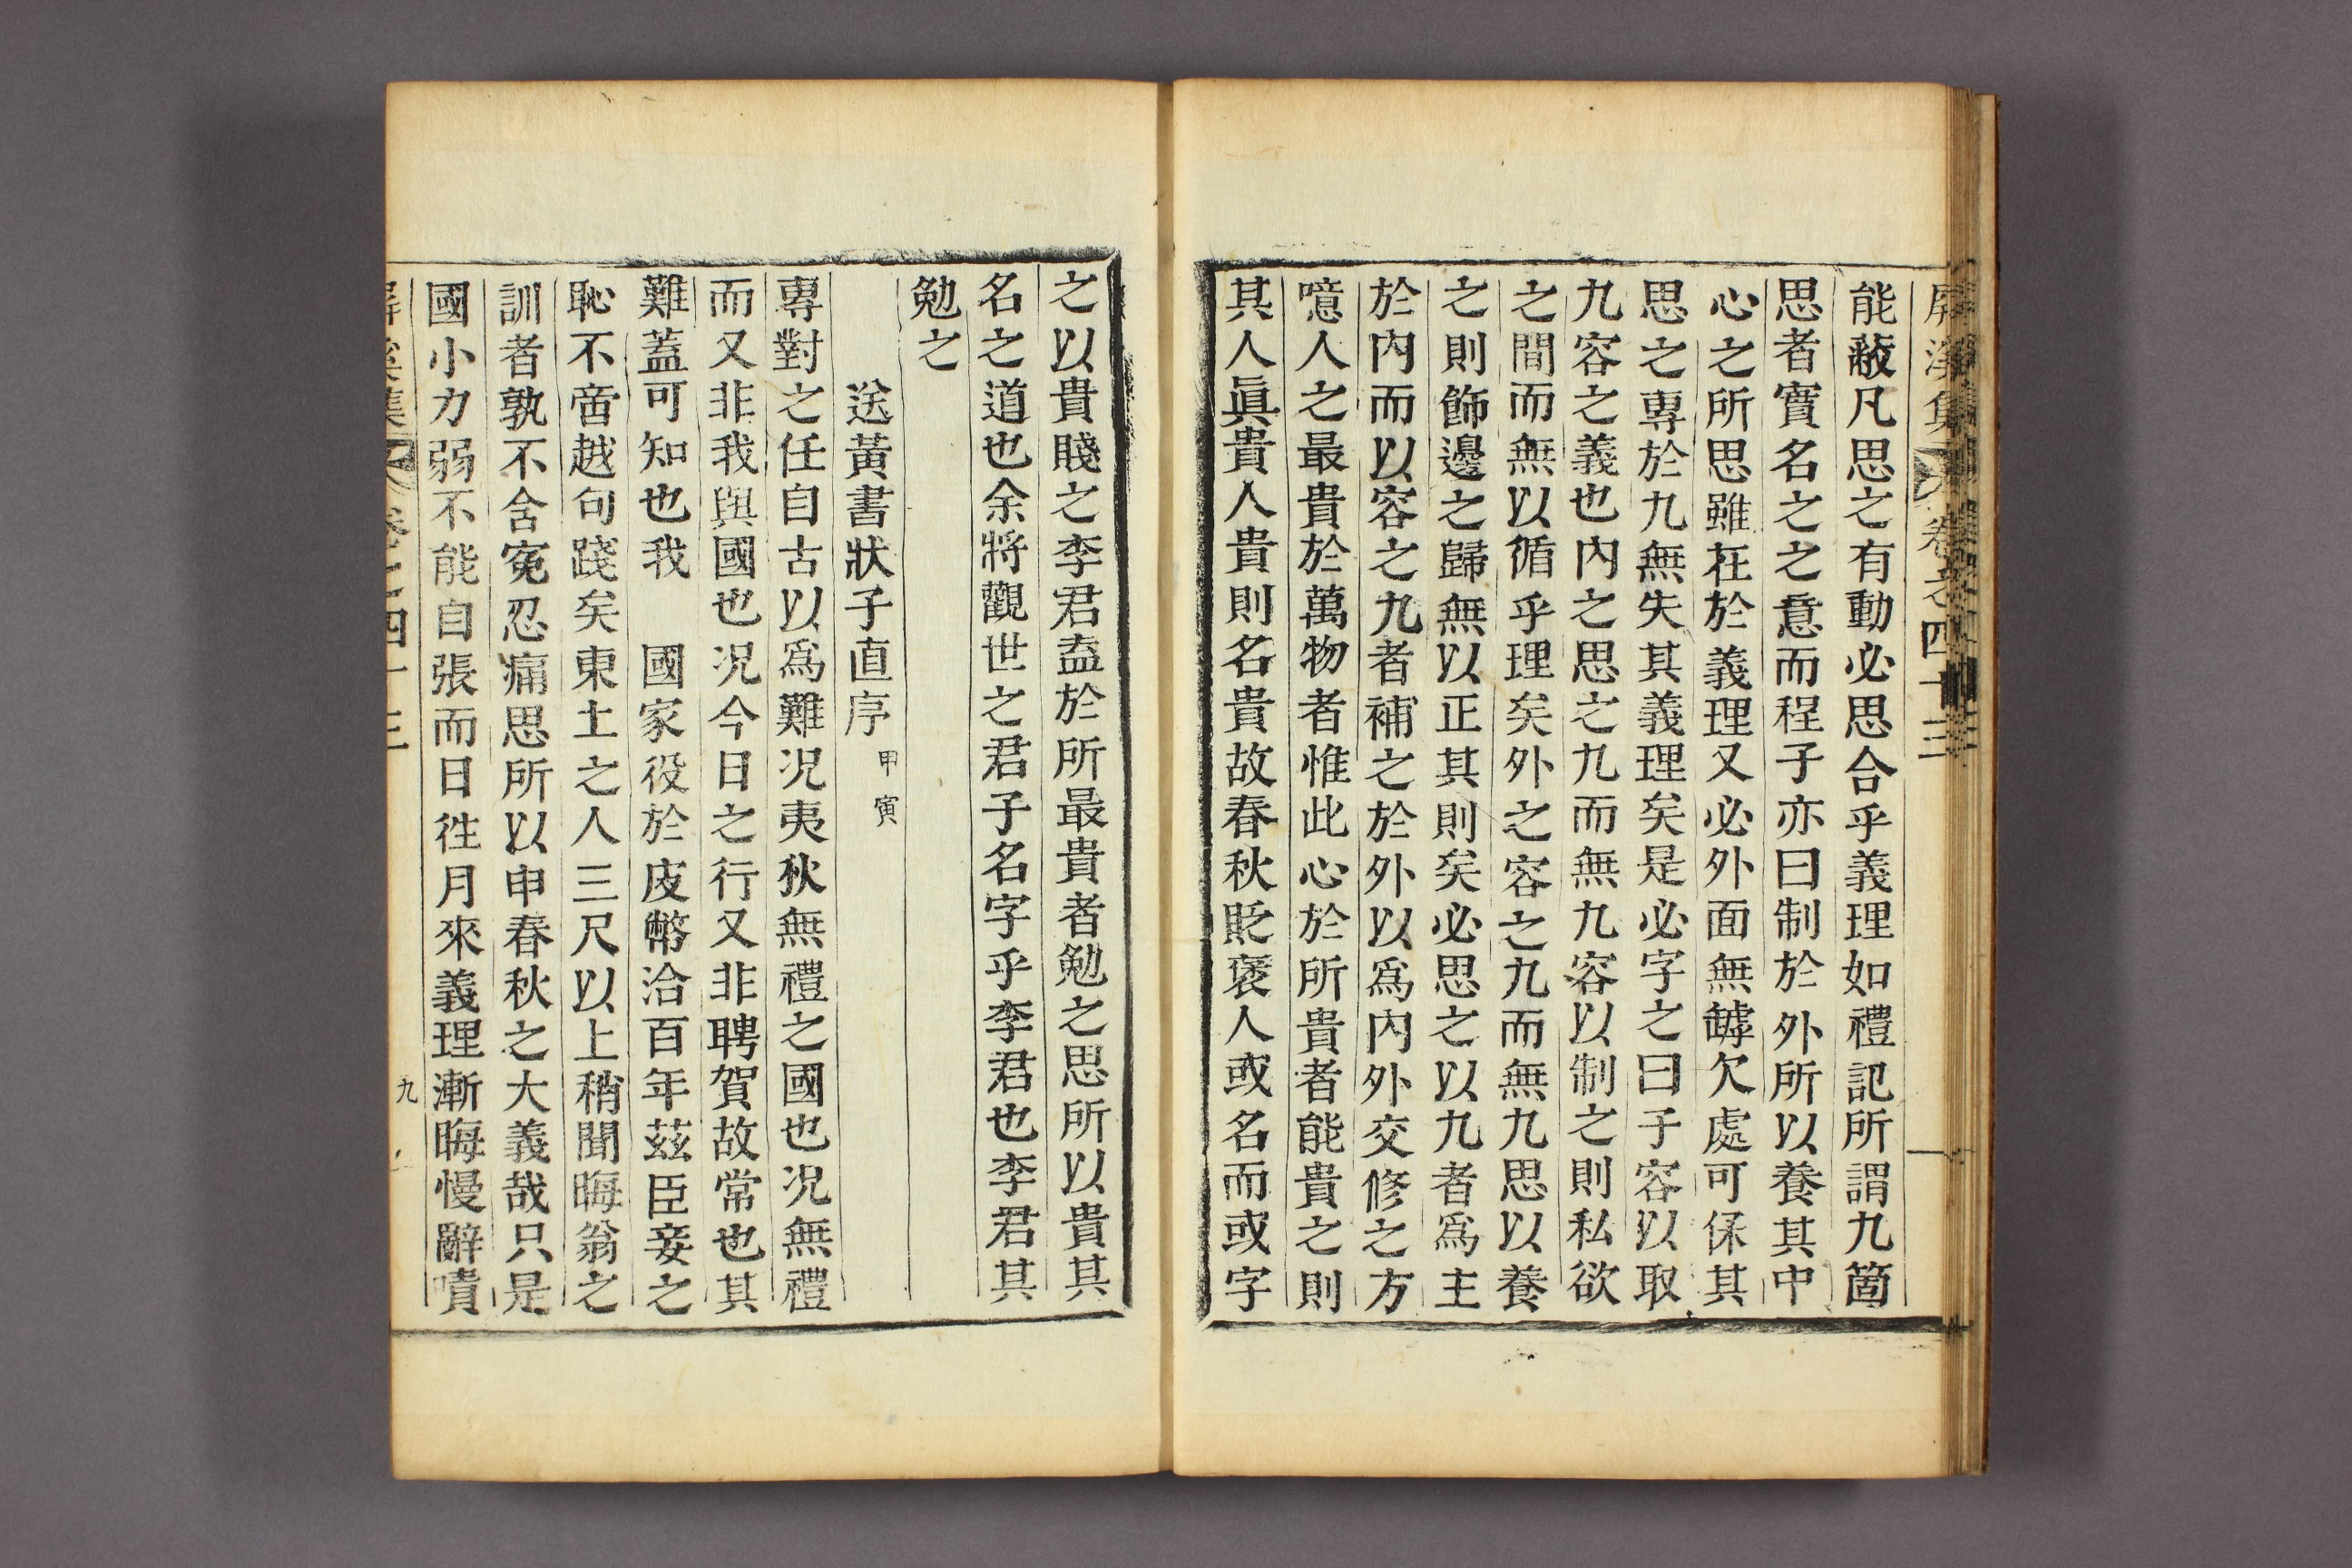 屛溪集 卷之四十三
能蔽凡思之有動必思合乎義理如禮記所謂九箇
思者實名之之意而程子亦曰制於外所以養其中
心之所思雖在於義理又必外面無罅欠處可保其
思之專於九無失其義理矣是必字之曰子容以取
九容之義也內之思之九而無九容以制之則私欲
之間而無以循乎理矣外之容之九而無九思以養
之則飾邊之歸無以正其則矣必思之以九者爲主
於內而以容之九者補之於外以爲內外交修之方
噫人之最貴於萬物者惟此心於所貴者能貴之則
其人眞貴人貴則名貴故春秋貶褒人或名而或字
之以貴賤之李君盍於所最貴者勉之思所以貴其
名之道也余將觀世之君子名字乎李君也李君其
勉之
送黃書狀子直序 甲寅
專對之任自古以爲難况夷狄無禮之國也况無禮
而又非我與國也况今日之行又非聘賀故常也其
難蓋可知也我 國家役於皮幣洽百年玆臣妾之
恥不啻越句踐矣東土之人三尺以上稍聞晦翁之
訓者孰不含寃忍痛思所以申春秋之大義哉只是
國小力弱不能自張而日往月來義理漸晦慢辭嘖
屛溪集 卷之四十三 九